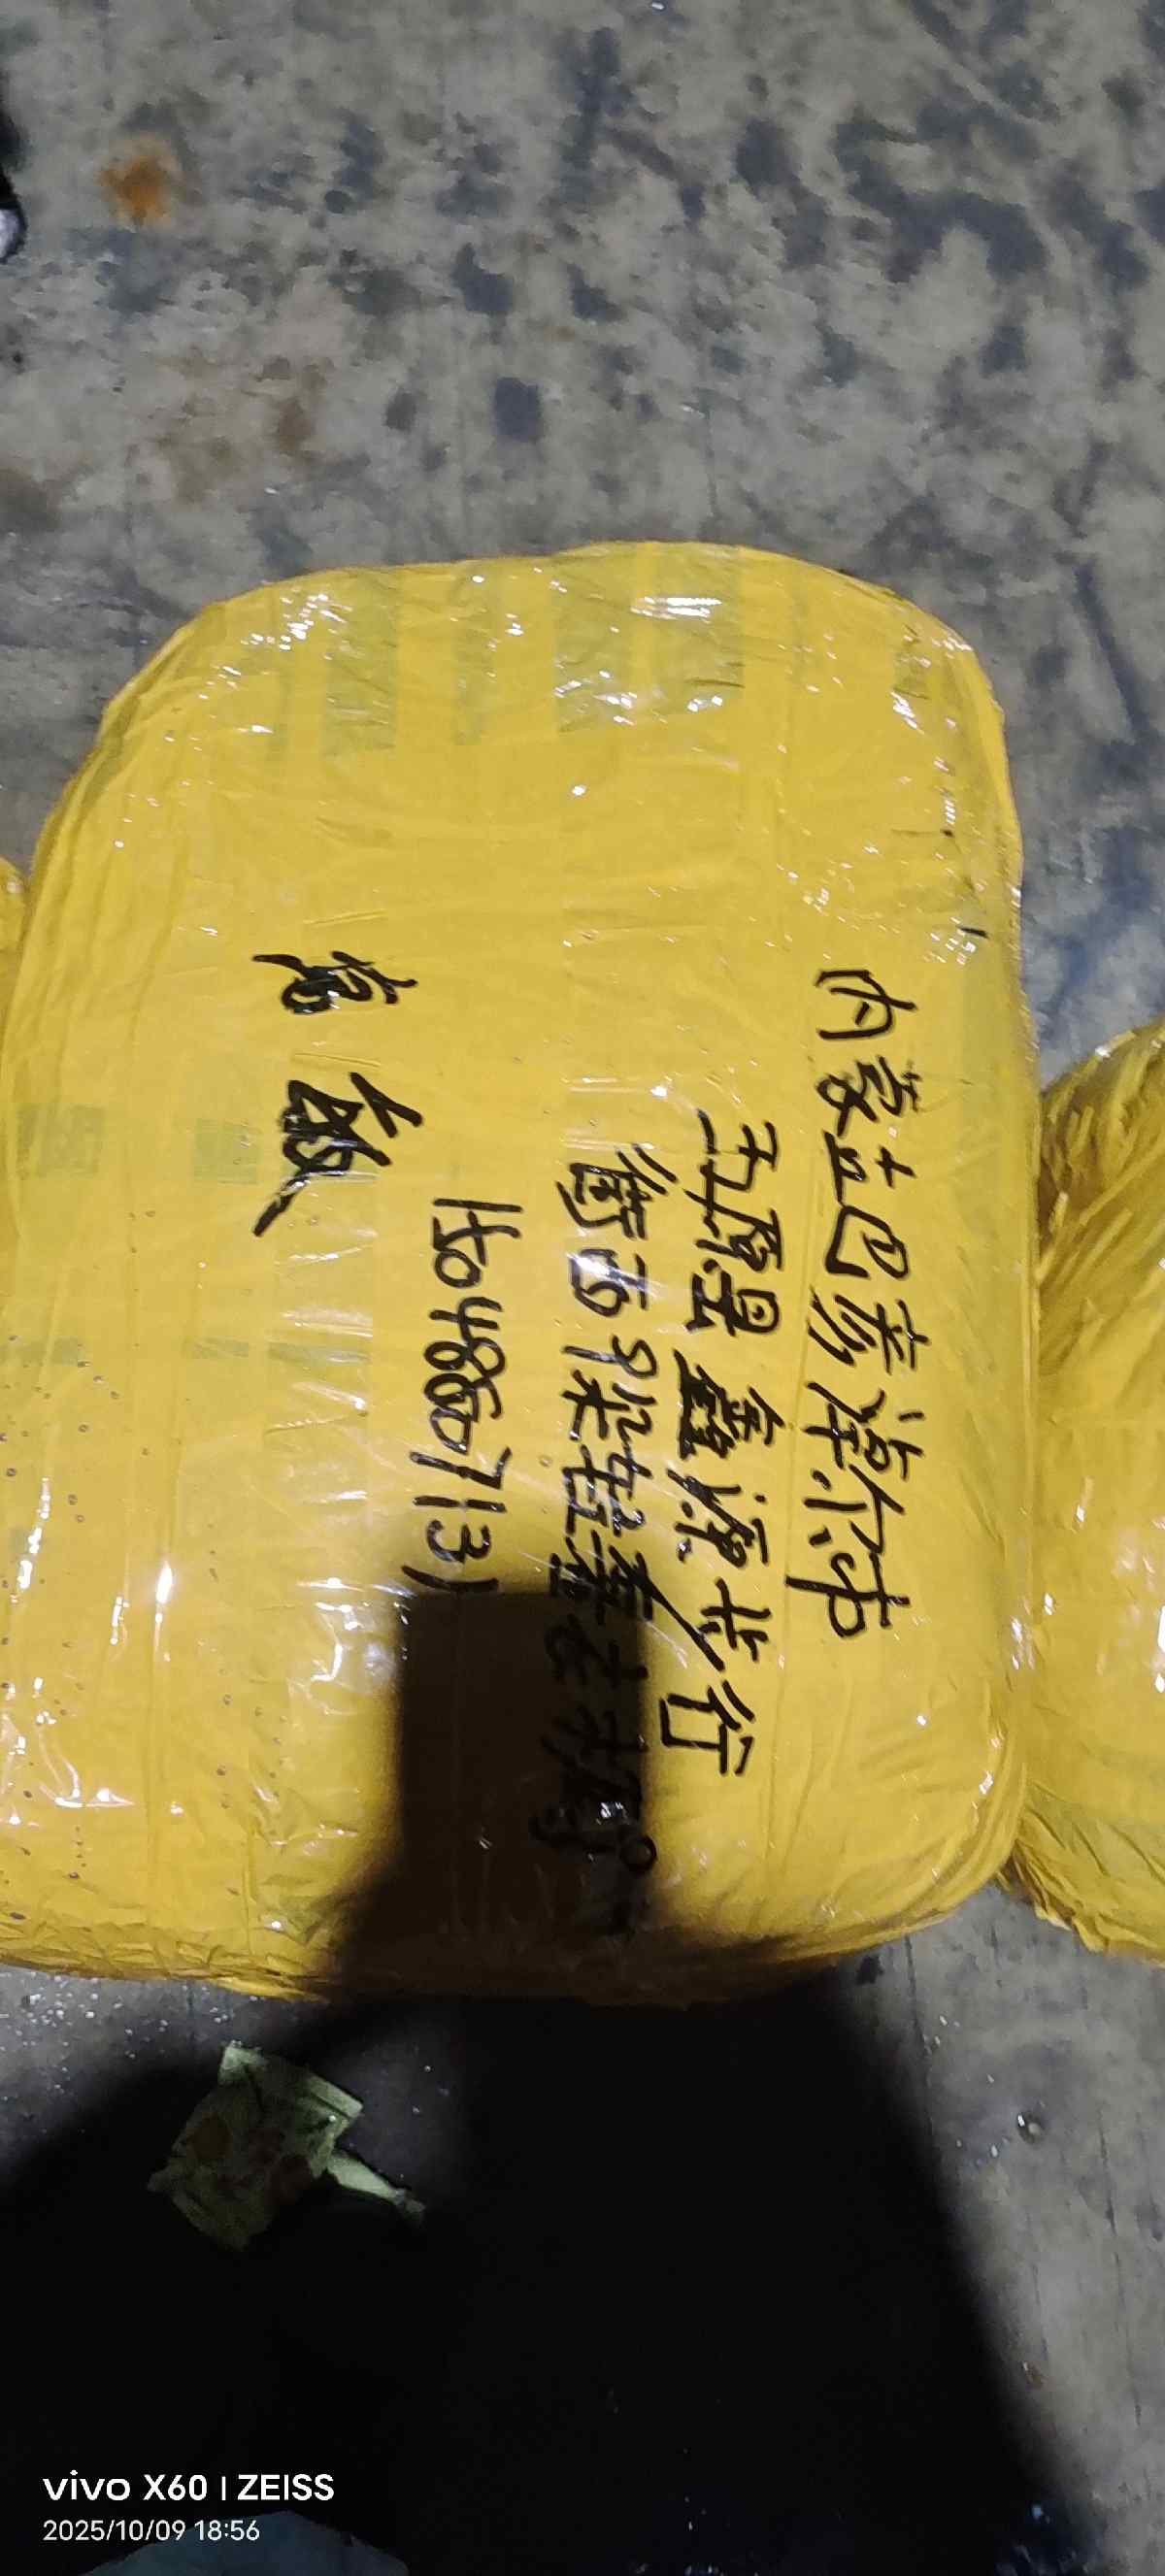 内蒙古巴彦淖尔市
五原县鑫源步行
街西
15048667131
高敏
vivo X60 | ZEISS
2025/10/09 18:56